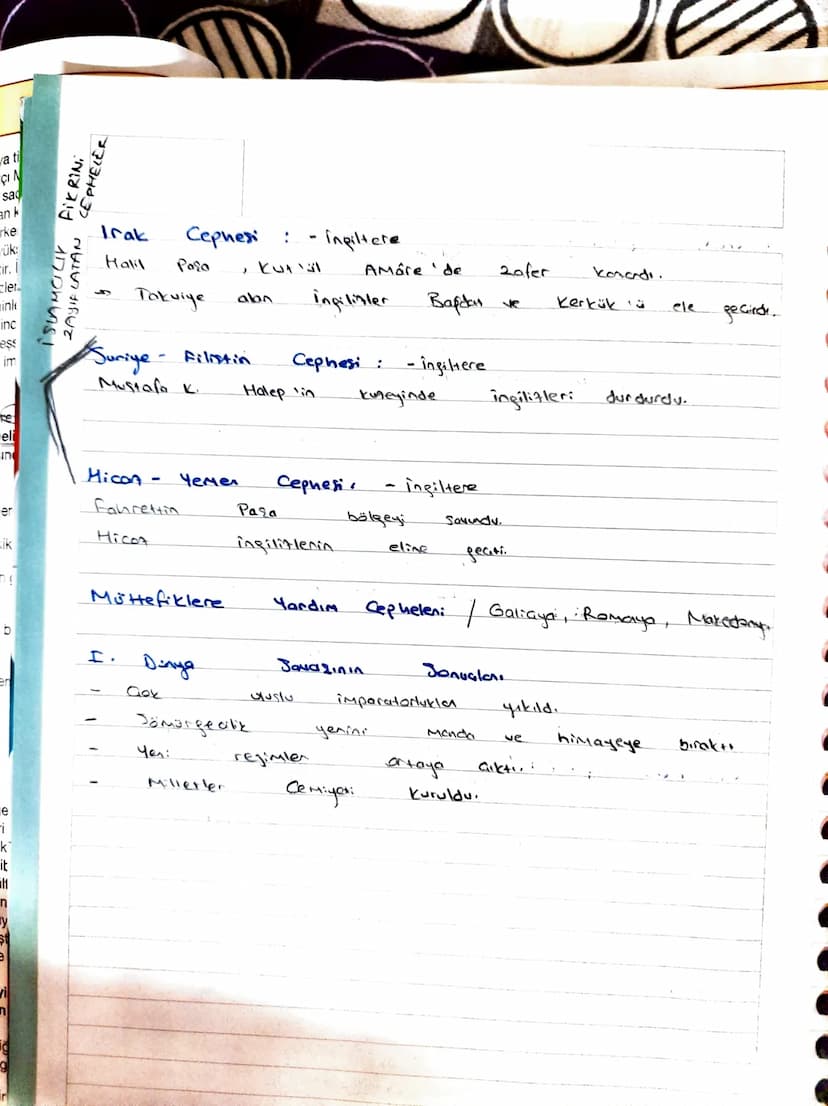 İSLAMCILIK FİKRİNİ
ZAYIFLATAN CEPHELER
Irak Cephesi : - İngiltere
Halil Paşa , Kut'ül Amâre 'de zafer kazandı.
Takviye alan İngilizler Bağdat ve Kerkük 'ü ele geçirdi.
Suriye - Filistin Cephesi : - İngiltere
Mustafa K. Halep 'in kuzeyinde İngilizleri durdurdu.
Hicaz - Yemen Cephesi - İngiltere
Fahrettin Paşa bölgeyi savundu.
Hicaz İngilizlerin eline geçti.
Müttefiklere Yardım Cepheleri / Galiçya, Romanya, Makedonya
I. Dünya Savaşının Sonuçları
- Çok uluslu imparatorluklar yıkıldı.
- Sömürgecilik yerini manda ve himayeye bıraktı
- Yeni rejimler ortaya çıktı.
- Milletler Cemiyeti kuruldu.